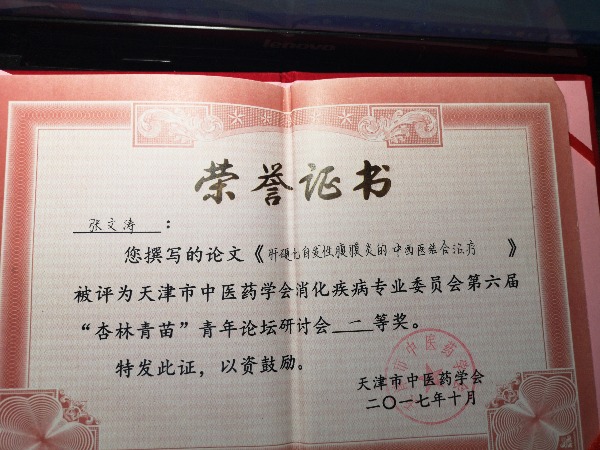 lenovo
荣誉证书
张文涛：
您撰写的论文《肝硬化自发性腹膜炎的中西医结合治疗》
被评为天津市中医药学会消化疾病专业委员会第六届
“杏林青苗”青年论坛研讨会二等奖。
特发此证，以资鼓励。
天津市中医药学会
二〇一七年十月